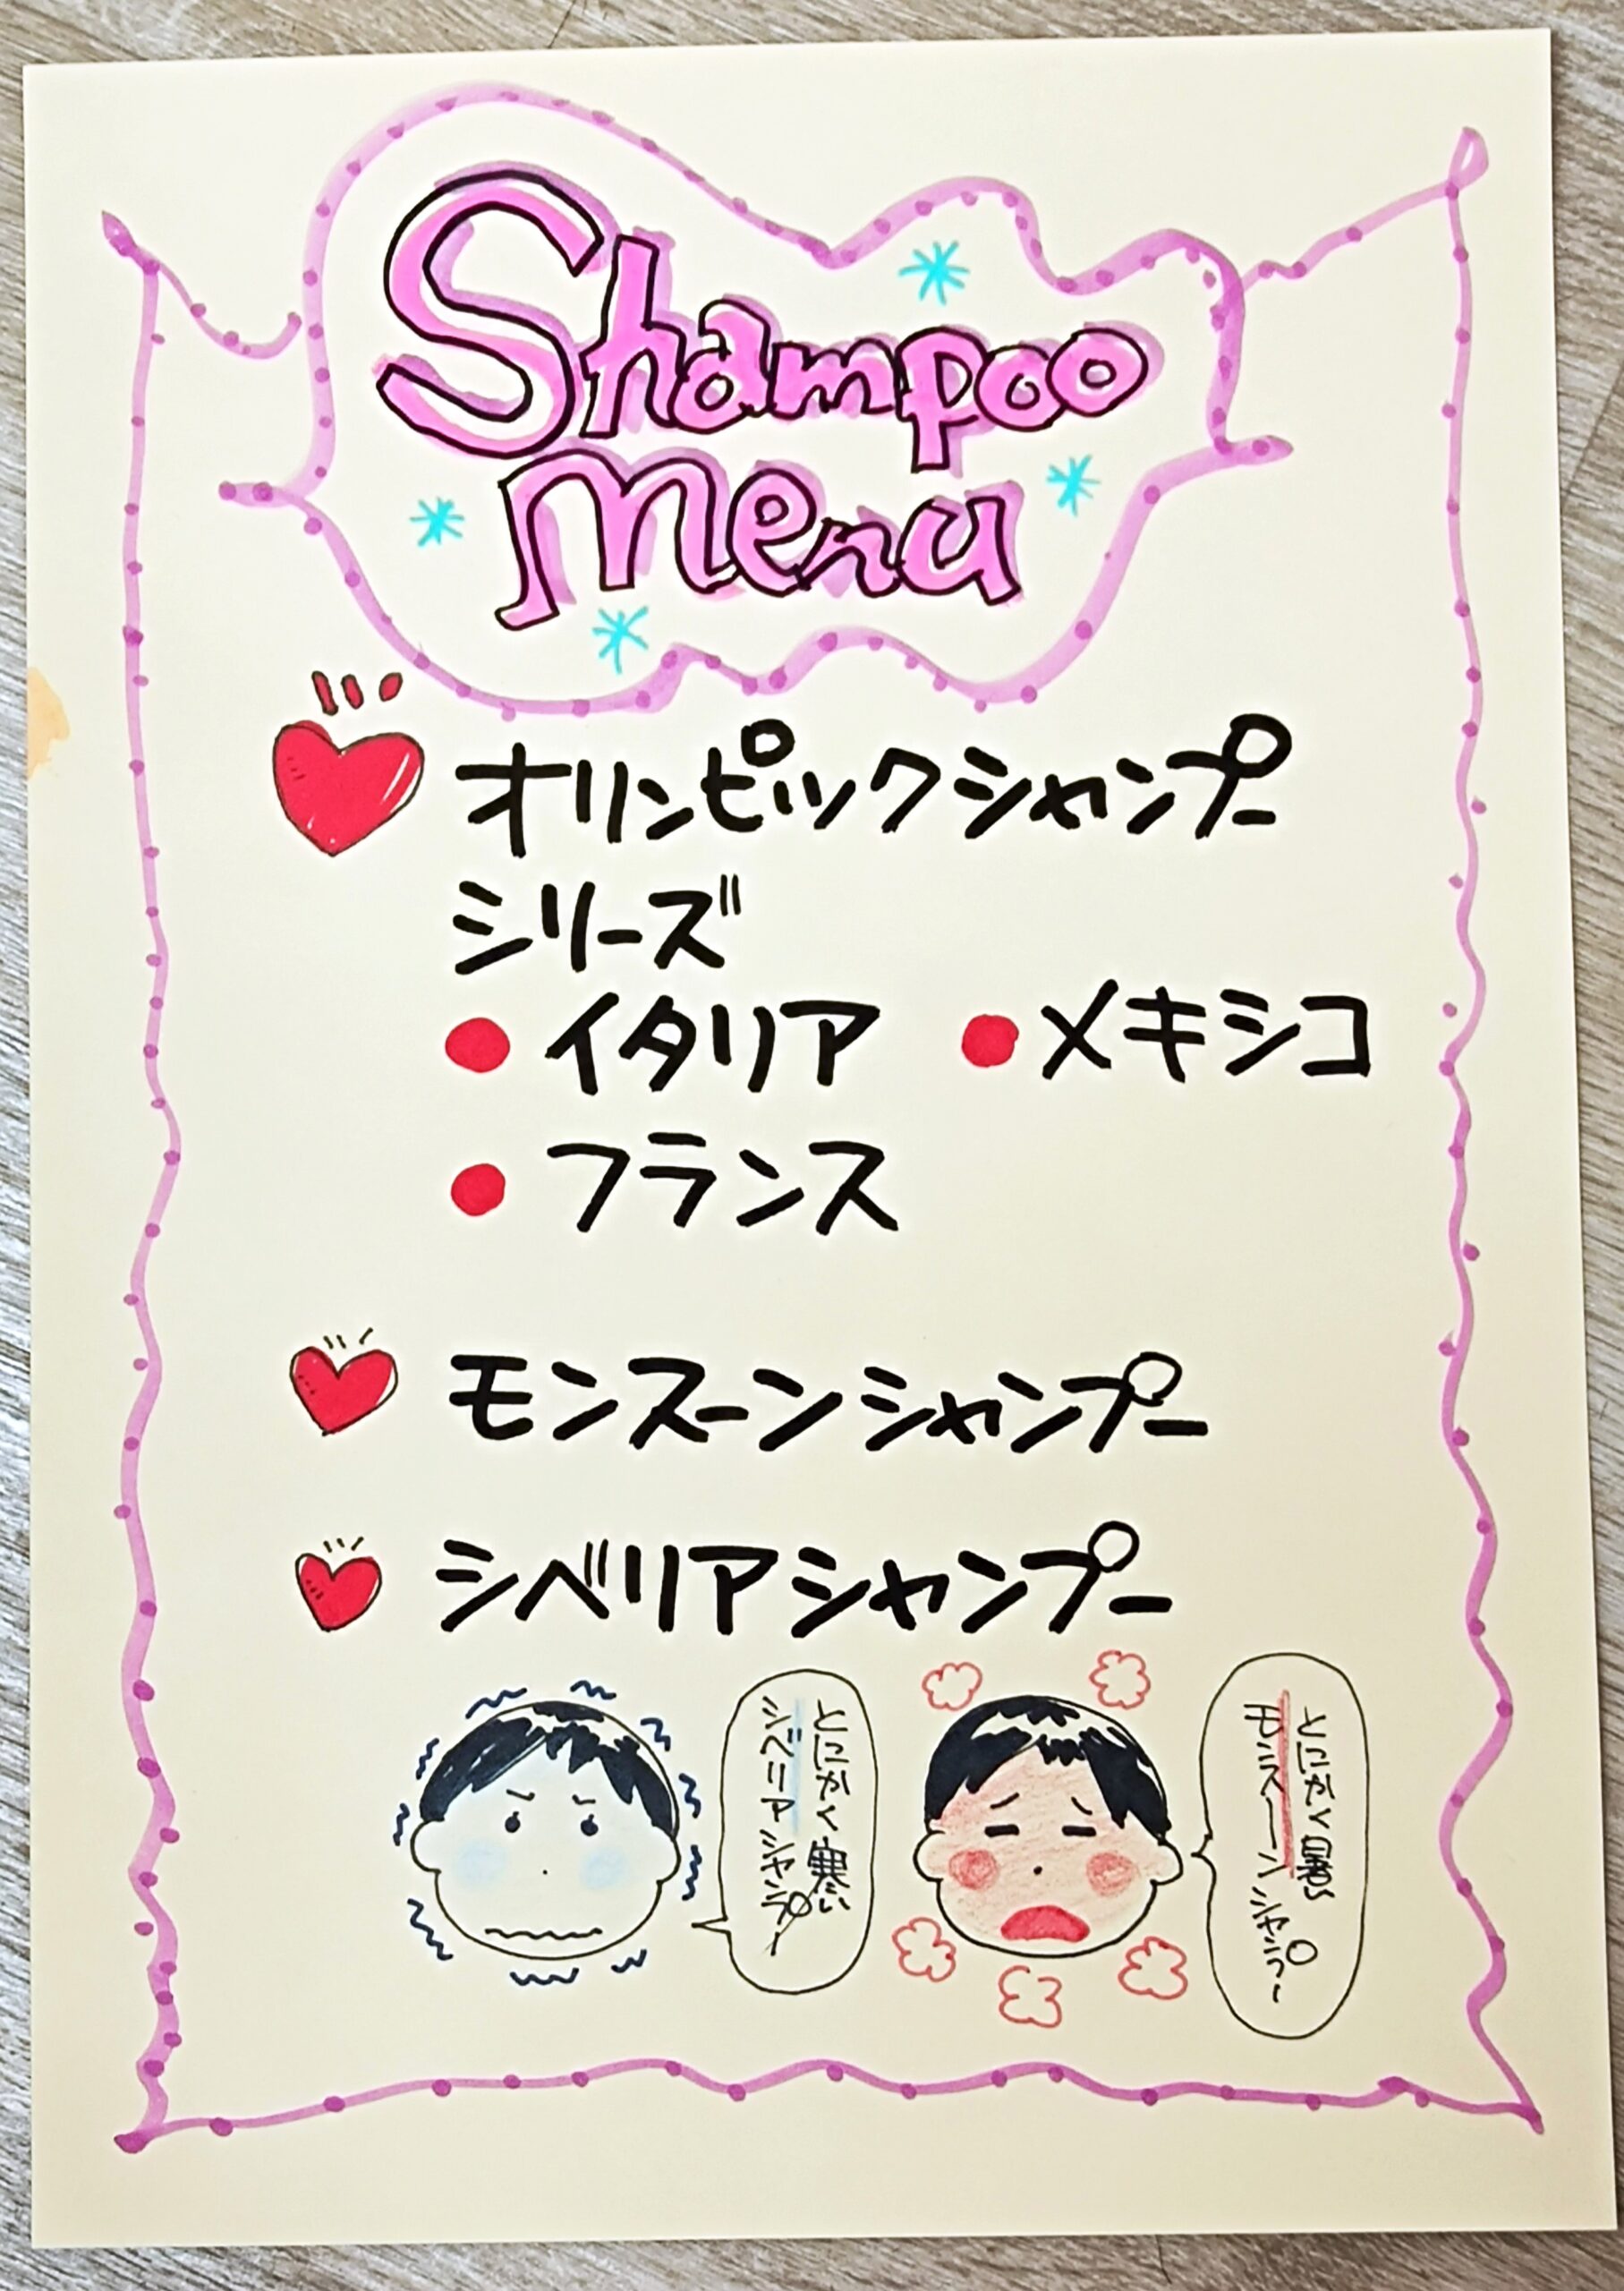 Shampoo
Menu
オリンピックシャンプー
シリーズ
イタリア
メキシコ
フランス
モンスーンシャンプー
シベリアシャンプー
とにかく寒い
シベリアシャンプー
とにかく暑い
モンスーンシャンプー